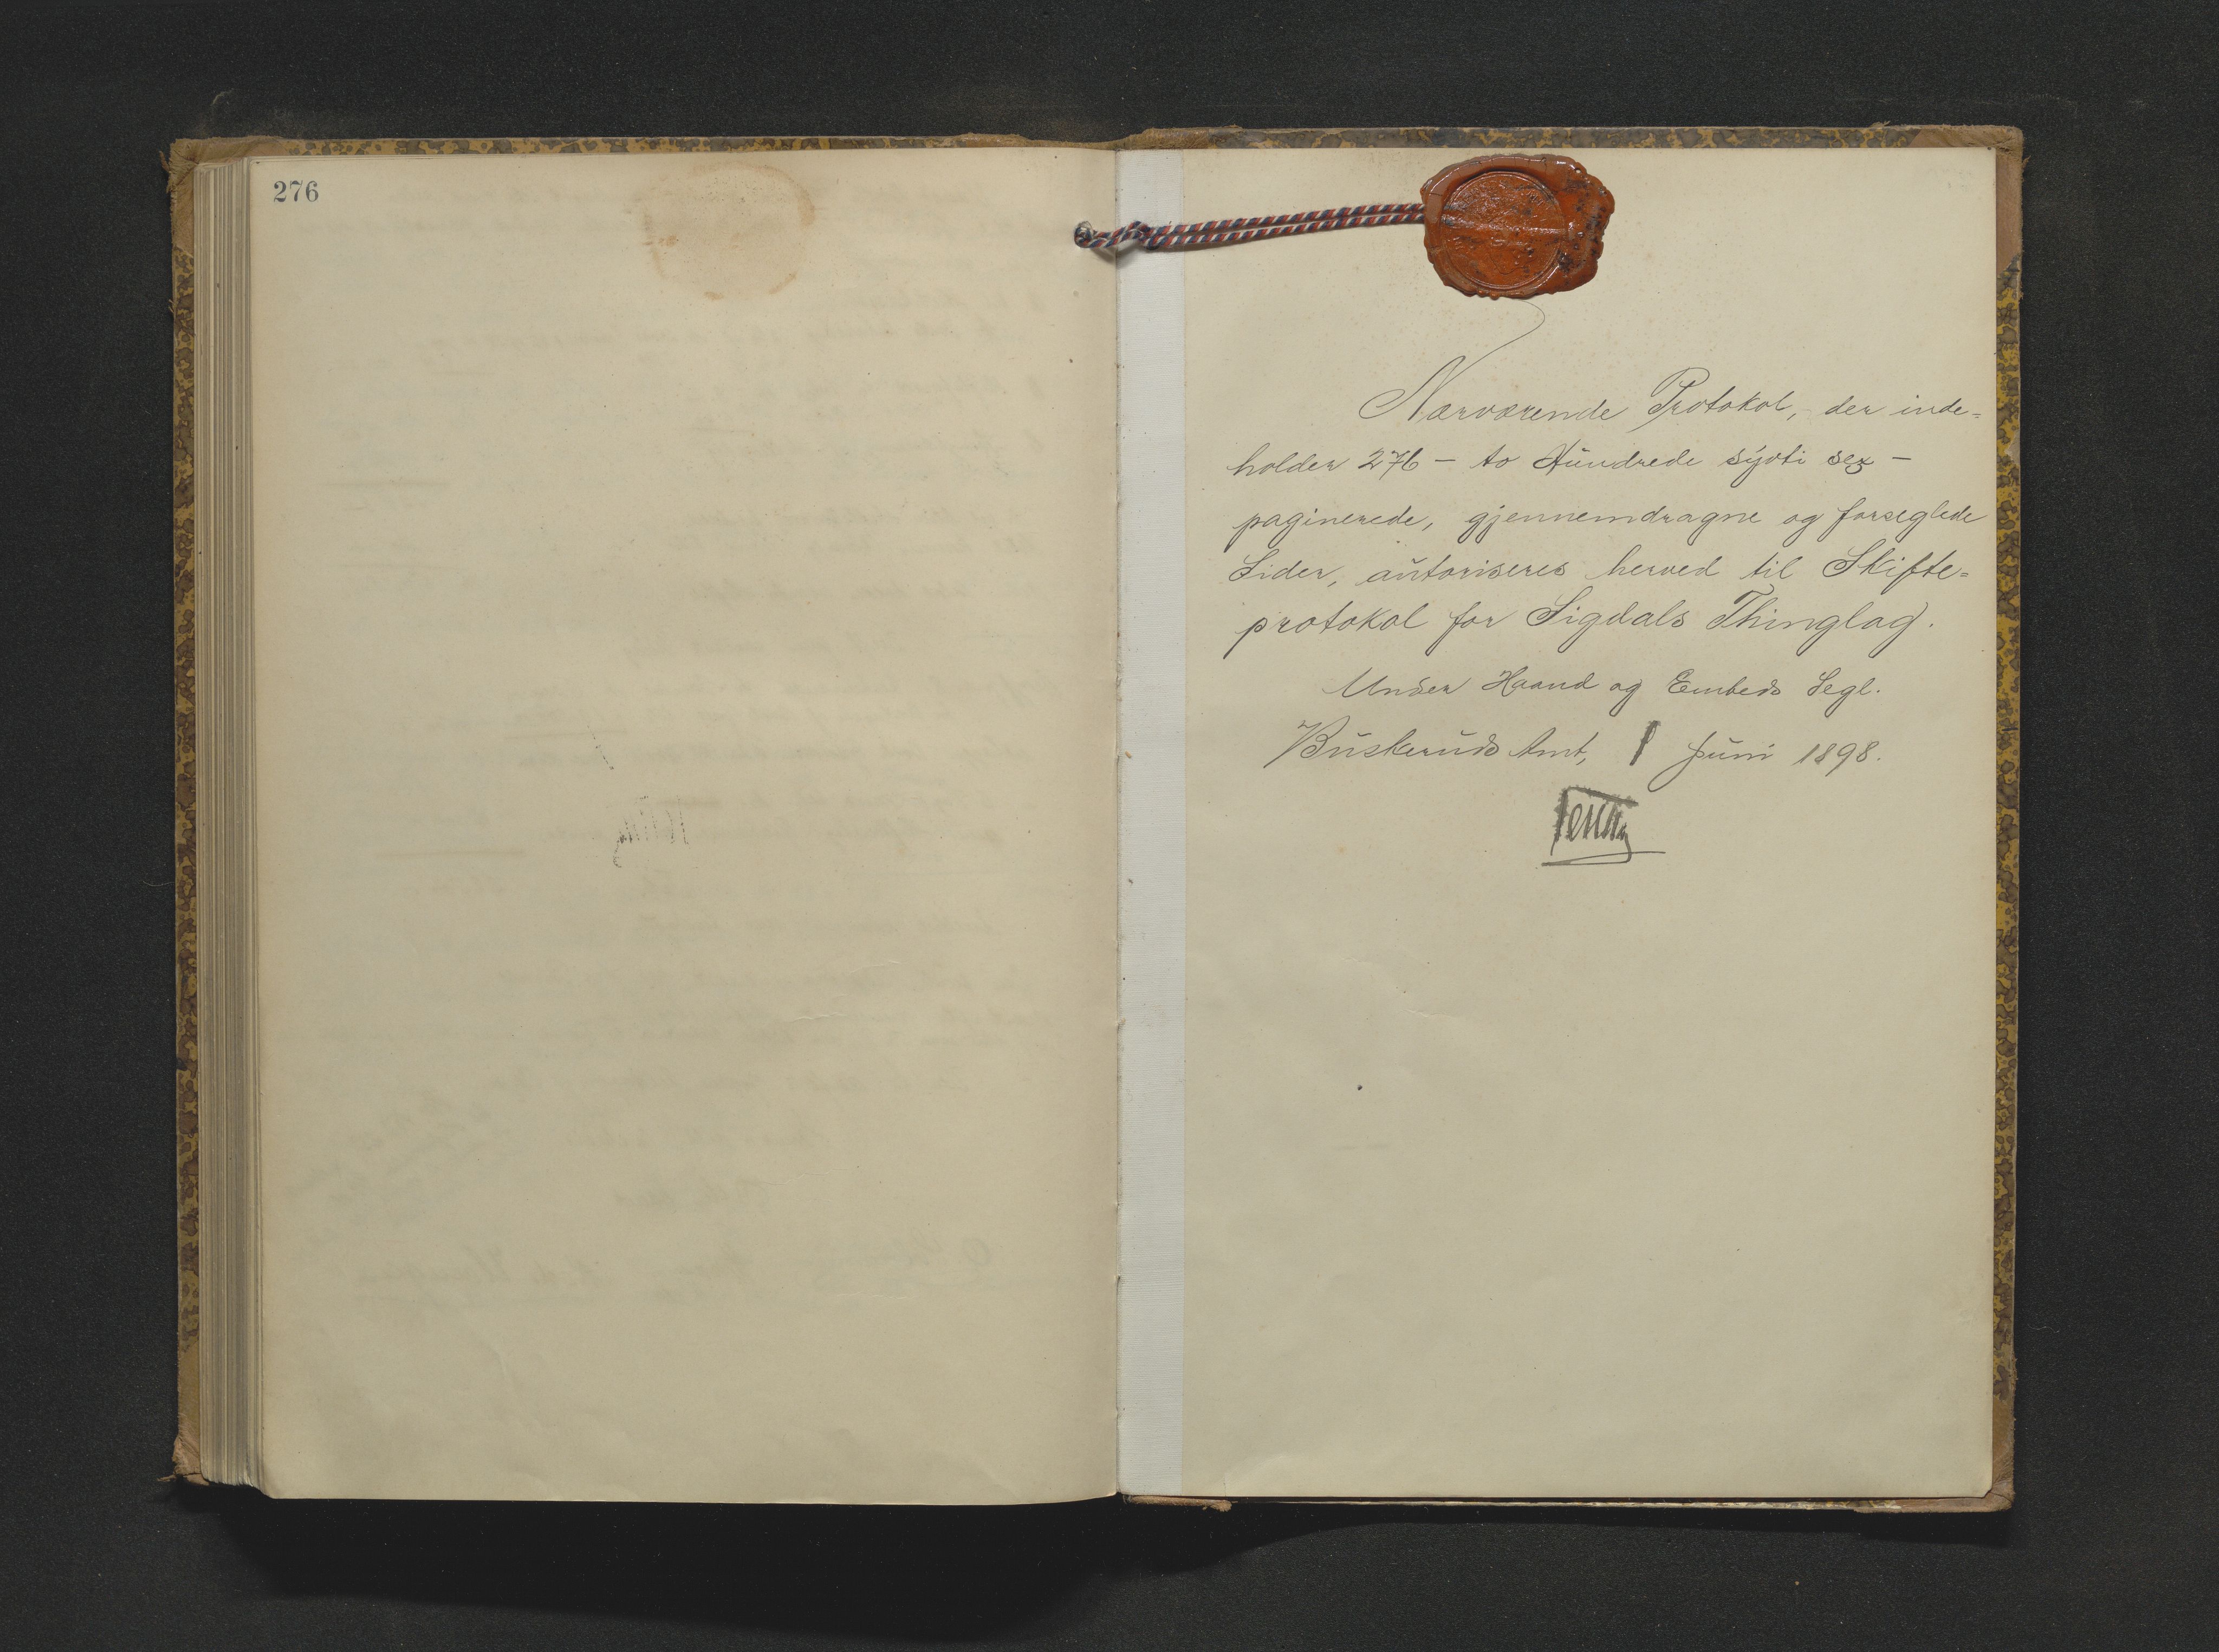 276
Nærværende Protokol, der inde=
holder 276 – to Hundrede sÿvti sex –
paginerede, gjennemdragne og forseglede
Sider, autoriseres herved til Skifte=
protokol for Sigdals Thinglag.
Under Haand og Embeds Segl.
Buskeruds Amt, 1 Juni 1898.